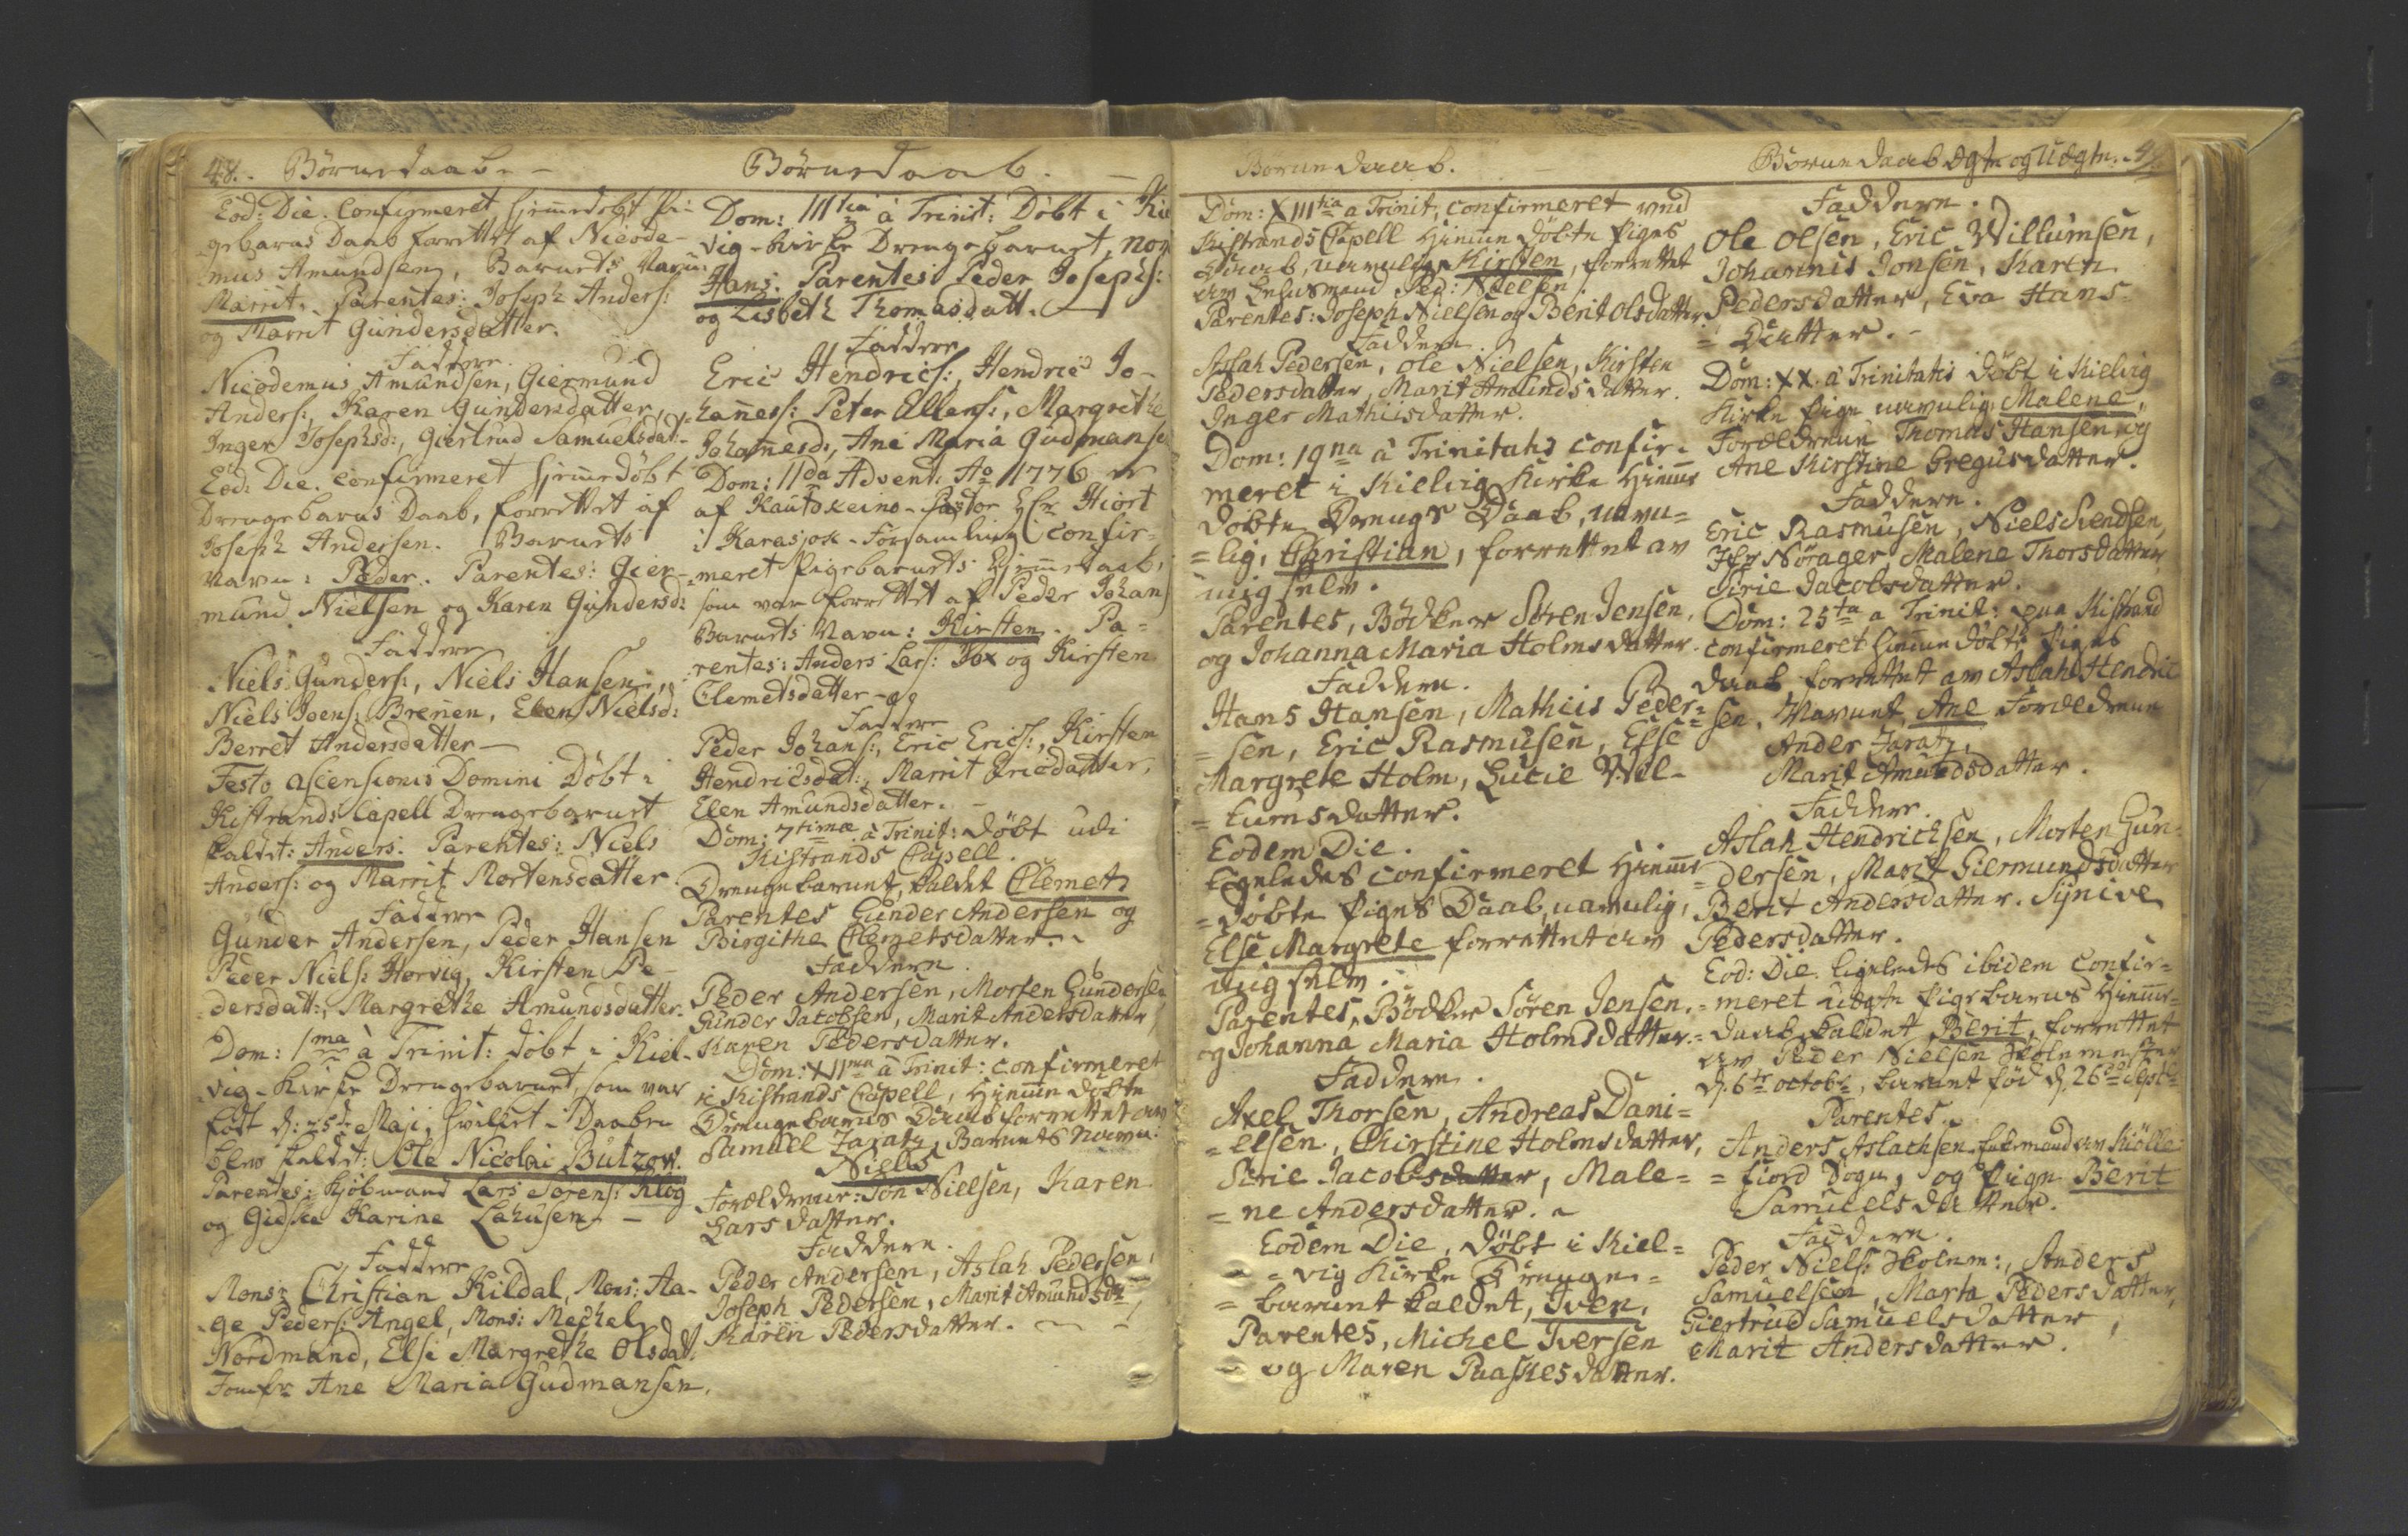 48. Børnedaab.
Eod: Die. Confirmeret hiemedøbt Pi-
gebarns Daab forrettet af Nicode-
mus Amundsen, Barnets Navn
Marrit. Parentes: Joseph Anders:
og Marrit Gundersdatter.
Faddere
Nicodemus Amundsen, Giermund
Anders:, Karen Gundersdatter,
Inger Josephsd:, Giertrud Samuelsdat:
Eod: Die. confirmeret hiemedøbt
Drengebarns Daab, forrettet af
Joseph Andersen. Barnets
Navn: Peder. Parentes: Gier-
mund Nielsen og Karen Gundersd:
Faddere
Niels Gunders:, Niels Hansen,
Niels Joens: Brenen, Elen Nielsd:
Berret Andersdatter
Festo ascensionis Domini Døbt i
Kistrands Capell Drengebarnet
kaldet: Anders. Parentes: Niels
Anders: og Marrit Mortensdatter.
Faddere
Gunder Andersen, Peder Hansen
Peder Niels: Horvig, Kirsten Pe-
dersdatt:, Margrethe Amundsdatter.
Dom: 1ma à Trinit: døbt i Kiel-
vig-Kirke Drengebarnet, som var
født d: 25de Maji, hvilket i Daaben
blev kaldet: Ole Nicolai Butzow.
Parentes: Kjøbmand Lars Sørens: Klog
og Gidske Karine Lahusen.
Faddere
Monsr Christian Kildal, Mons: Aa-
ge Peders: Angel, Mons: Mechel
Nordmand, Else Margrethe Olsdat.
Jomfr Ane Maria Gudmansen.
Børnedaab.
Dom: IIItia à Trinit: Døbt i Kiel
vig-Kirke Drengebarnet, nom
Hans. Parentes Peder Josephs:
og Lisbeth Thomasdatt.
Faddere
Eric Hendrics:, Hendric Jo-
hanness: Peter Ellens:, Margrethe
Johannesd:, Ane Maria Gudmanse
Dom: IIda Advent: Ao 1776 er
af Kautokeino-Pastor Hr Hiort
i Karasjok-Forsamling confir-
meret Pigebarnets Hiemedaab,
som var forrettet af Peder Johans
Barnets Navn: Kirsten. Pa-
rentes: Anders Lars: Fox og Kirsten
Clemetsdatter
Faddere
Peder Johans:, Eric Erics:, Kirsten
Hendricsdat:, Marrit Ericdatter,
Elen Amundsdatter.
Dom: 7timæ à Trinit: døbt udi
Kistrands Capell.
Drengebarnet, kaldet Clemet
Parentes Gunder Andersen og
Birgithe Clemetsdatter.
Faddere.
Peder Andersen, Morten Gundersen
Gunder Jacobsen, Marit Andersdatter
Karen Pedersdatter.
Dom: XIIma à Trinit: confirmeret
i Kistrands Capell, Hiemmedøbte
Drengebarns Daab forrettet av
Samuel Zaratz, Barnets Navn:
Niels
Forældrene: Jon Nielsen, Karen
Larsdatter.
Faddere.
Peder Andersen, Aslak Pedersen,
Joseph Pedersen, Marit Amundsdr
Karen Pedersdatter.
Børnedaab.
Dom: XIIItia a Trinit, confirmeret ved
Kistrands Capell Hiemmedøbte Piges
Daab, navnlig Kirsten, forrettet
av Lehnsmand Ped: Nielsen.
Parentes: Joseph Nielsen og Berit Olsdatter.
Faddere
Aslak Pedersen, Ole Nielsen, Kirsten
Pedersdatter, Marit Amundsdatter.
Inger Mathiisdatter.
Dom: 19na à Trinitatis confir-
meret i Kielvig Kirke Hiemme
døbte Drengs Daab, navn-
=lig, Christian, forrettet av
mig selv.
Parentes, Bødker Søren Jensen,
og Johanna Maria Holmsdatter.
Faddere.
Hans Hansen, Mathiis Peder-
=sen, Eric Rasmusen, Else
Margrete Holm, Lucie Vil-
=lumsdatter.
Eodem Die.
Ligeledes confirmeret Hiemme
=døbte Piges Daab, navnlig,
Else Margrete forrettet av
mig selv.
Parentes, Bødker Søren Jensen,
og Johanna Maria Holmsdatter.
Faddere.
Axel Thorsen, Andreas Dani=
=elsen, Christine Holmsdatter,
Sirie Jacobsdatter, Male=
=ne Andersdatter.
Eodem Die, døbt i Kiel=
=vig Kirke Drenge=
=barnet kaldet, Iven,
Parentes, Michel Iversen
og Maren Paaskesdatter.
Børnedaab Ægte og Uægte. 49
Faddere.
Ole Olsen, Eric Willumsen,
Johannis Jonsen, Karen
Pedersdatter, Eva Hans-
=Datter.
Dom: XX. à Trinitatis døbt i Kielvig
Kirke Pige navnlig, Malene,
Forældrene Thomas Hansen og
Ane Kirstine Gregusdatter.
Faddere.
Eric Rasmusen, Niels Svendsen,
Hr Nørager, Malene Thorsdatter,
Sirie Jacobsdatter.
Dom: 25ta a Trinit: paa Kistrand
confirmeret Hiemmedøbte Piges
daab forrettet av Aslak Hendric
sen, Navnet, Ane Forældrene
Ander Zaratz,
Marit Amundsdatter.
Faddere.
Aslak Hendrichsen, Morten Gun-
=dersen, Marit Giermundsdatter
Berit Andersdatter. Synive
Pedersdatter.
Eod: Die. ligeledes ibidem confir=
=meret uægte Pigebarns Hiemme=
=daab kaldet, Berit, forrettet
av Peder Nielsen Skolemester
d. 6te octobr, barnet fød d. 26de Septbr
Parentes.
Anders Aslachsen Enkemand av Kiølle=
=fiord Sogn, og Pigen Berit
Samuelsdatter.
Faddere.
Peder Niels: Skolem:, Anders
Samuelsen, Marta Pedersdatter,
Giertrud Samuelsdatter,
Marit Andersdatter.